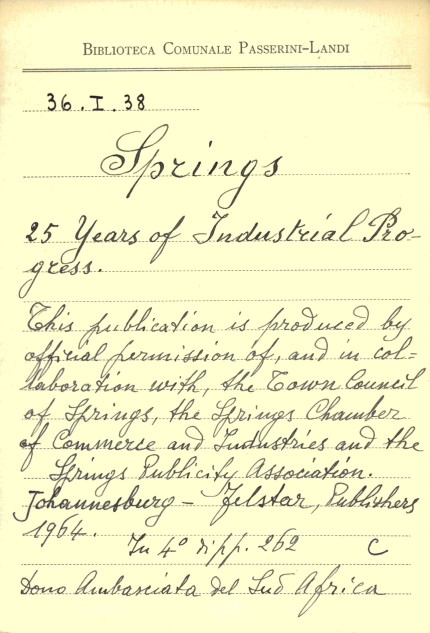 BIBLIOTECA COMUNALE PASSERINI-LANDI
36.I.38
Springs
25 Years of Industrial Pro-
gress.
This publication is produced by
official permission of, and in col=
laboration with, the Town Council
of Springs, the Springs Chamber
of Commerce and Industries and the
Springs Publicity Association.
Johannesburg - Felstar, Publishers
1964.
In 4° di pp. 262 C
Dono Ambasciata del Sud Africa